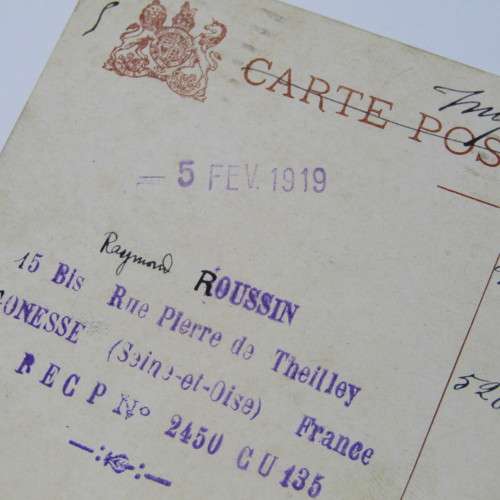 CARTE POS
5 FEV. 1919
Raymond ROUSSIN
15 Bis Rue Pierre de Theilley
GONESSE (Seine-et-Oise) France
RECP No 2450 CU 135
520